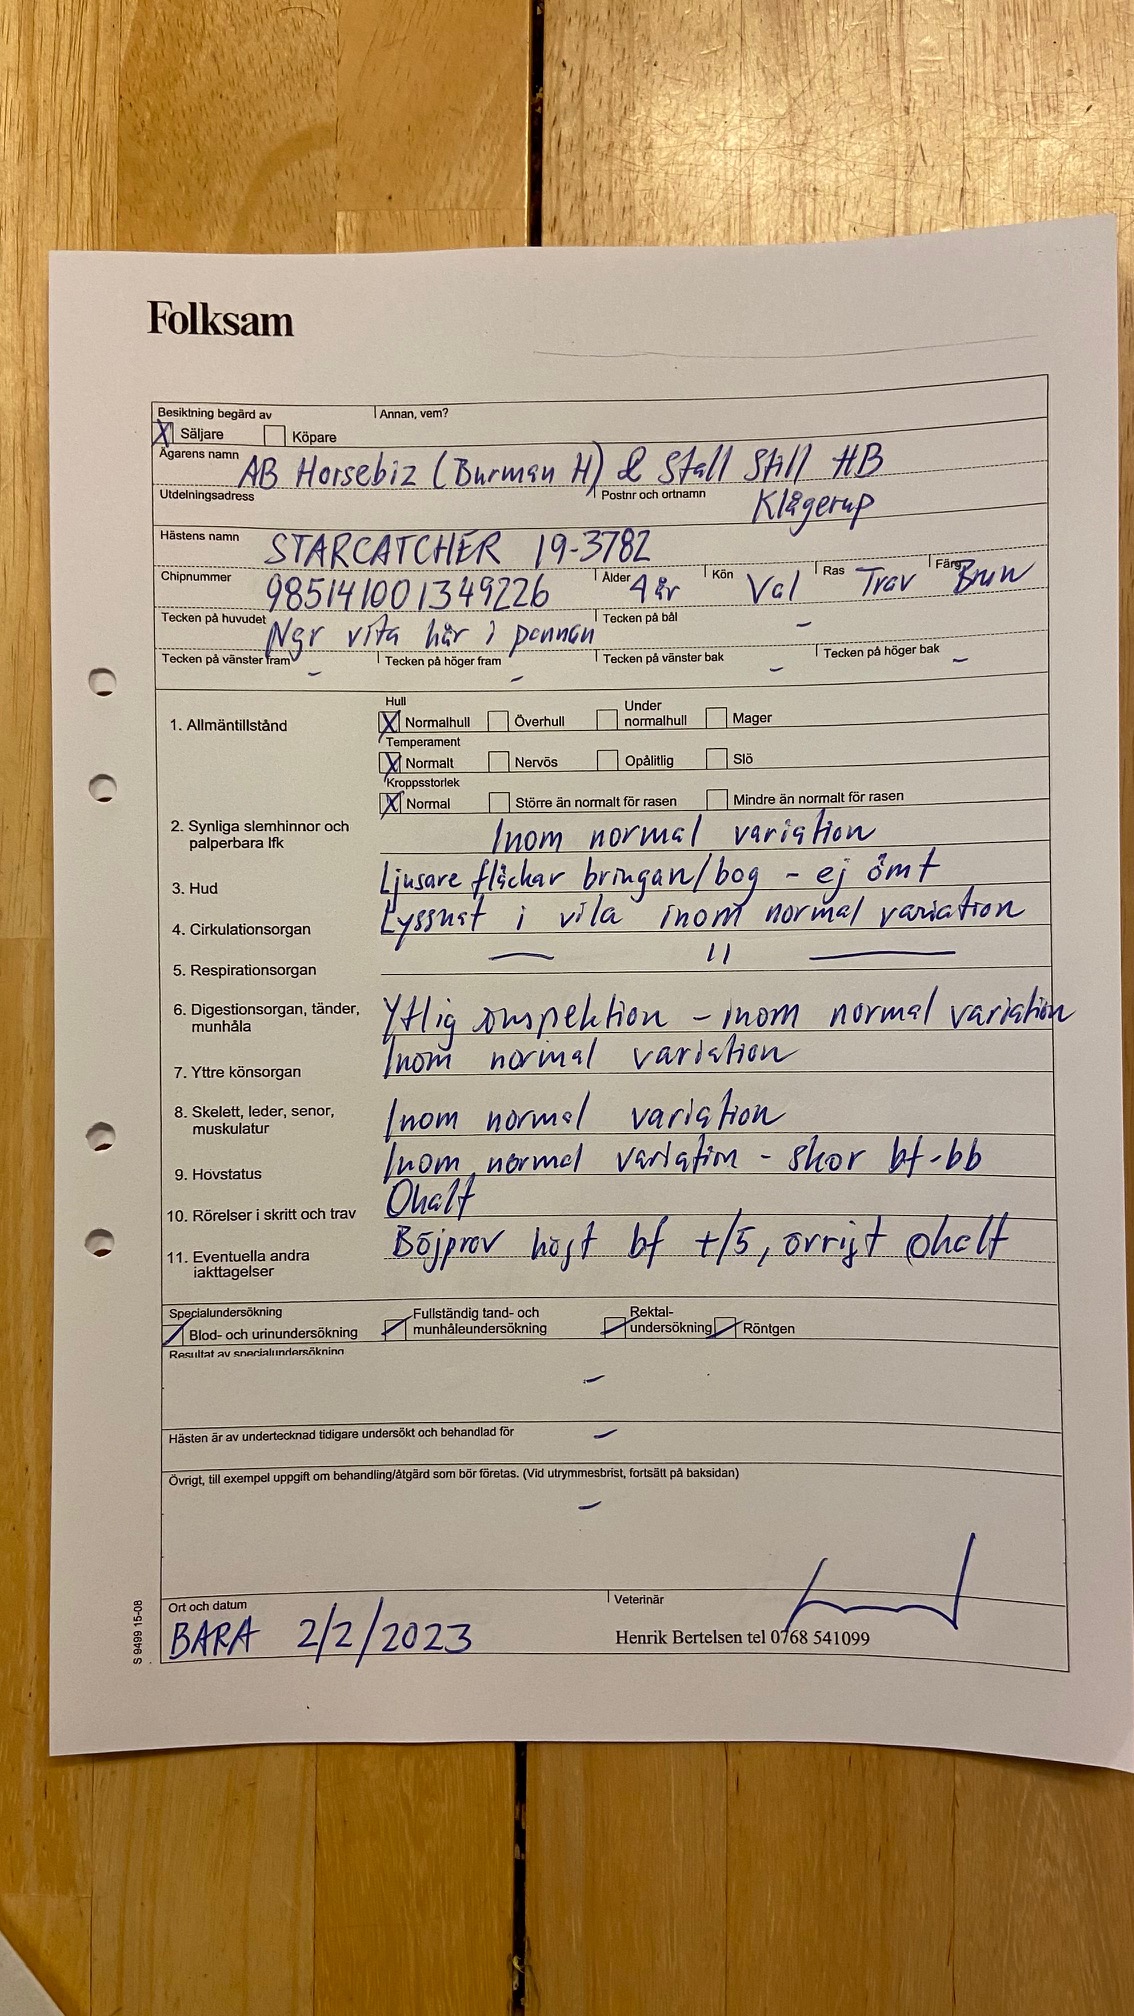 Folksam
Besiktning begärd av Annan, vem?
X Säljare Köpare
Ägarens namn AB Horsebiz (Burman H) & Stall Still HB
Utdelningsadress Postnr och ortnamn Klågerup
Hästens namn STARCATCHER 19-3782
Chipnummer 985141001349226 Ålder 4 år Kön Val Ras Trav Färg Brun
Tecken på huvudet Ngr vita hår i pannan Tecken på bål –
Tecken på vänster fram – Tecken på höger fram – Tecken på vänster bak – Tecken på höger bak –
Hull
1. Allmäntillstånd X Normalhull Överhull Under normalhull Mager
Temperament
X Normalt Nervös Opålitlig Slö
Kroppsstorlek
X Normal Större än normalt för rasen Mindre än normalt för rasen
2. Synliga slemhinnor och palperbara lfk Inom normal variation
3. Hud Ljusare fläckar bringan/bog - ej ömt
4. Cirkulationsorgan Lyssnat i vila inom normal variation
5. Respirationsorgan — 11 —
6. Digestionsorgan, tänder, munhåla Ytlig inspektion - inom normal variation
7. Yttre könsorgan Inom normal variation
8. Skelett, leder, senor, muskulatur Inom normal variation
9. Hovstatus Inom normal variation - skor bf-bb
10. Rörelser i skritt och trav Ohalt
11. Eventuella andra iakttagelser Böjprov högt bf +/5, övrigt ohalt
Specialundersökning
Blod- och urinundersökning Fullständig tand- och munhåleundersökning Rektal-undersökning Röntgen
Resultat av specialundersökning
–
Hästen är av undertecknad tidigare undersökt och behandlad för –
Övrigt, till exempel uppgift om behandling/åtgärd som bör företas. (Vid utrymmesbrist, fortsätt på baksidan)
–
Ort och datum Veterinär
BARA 2/2/2023 Henrik Bertelsen tel 0768 541099
S 9499 15-08